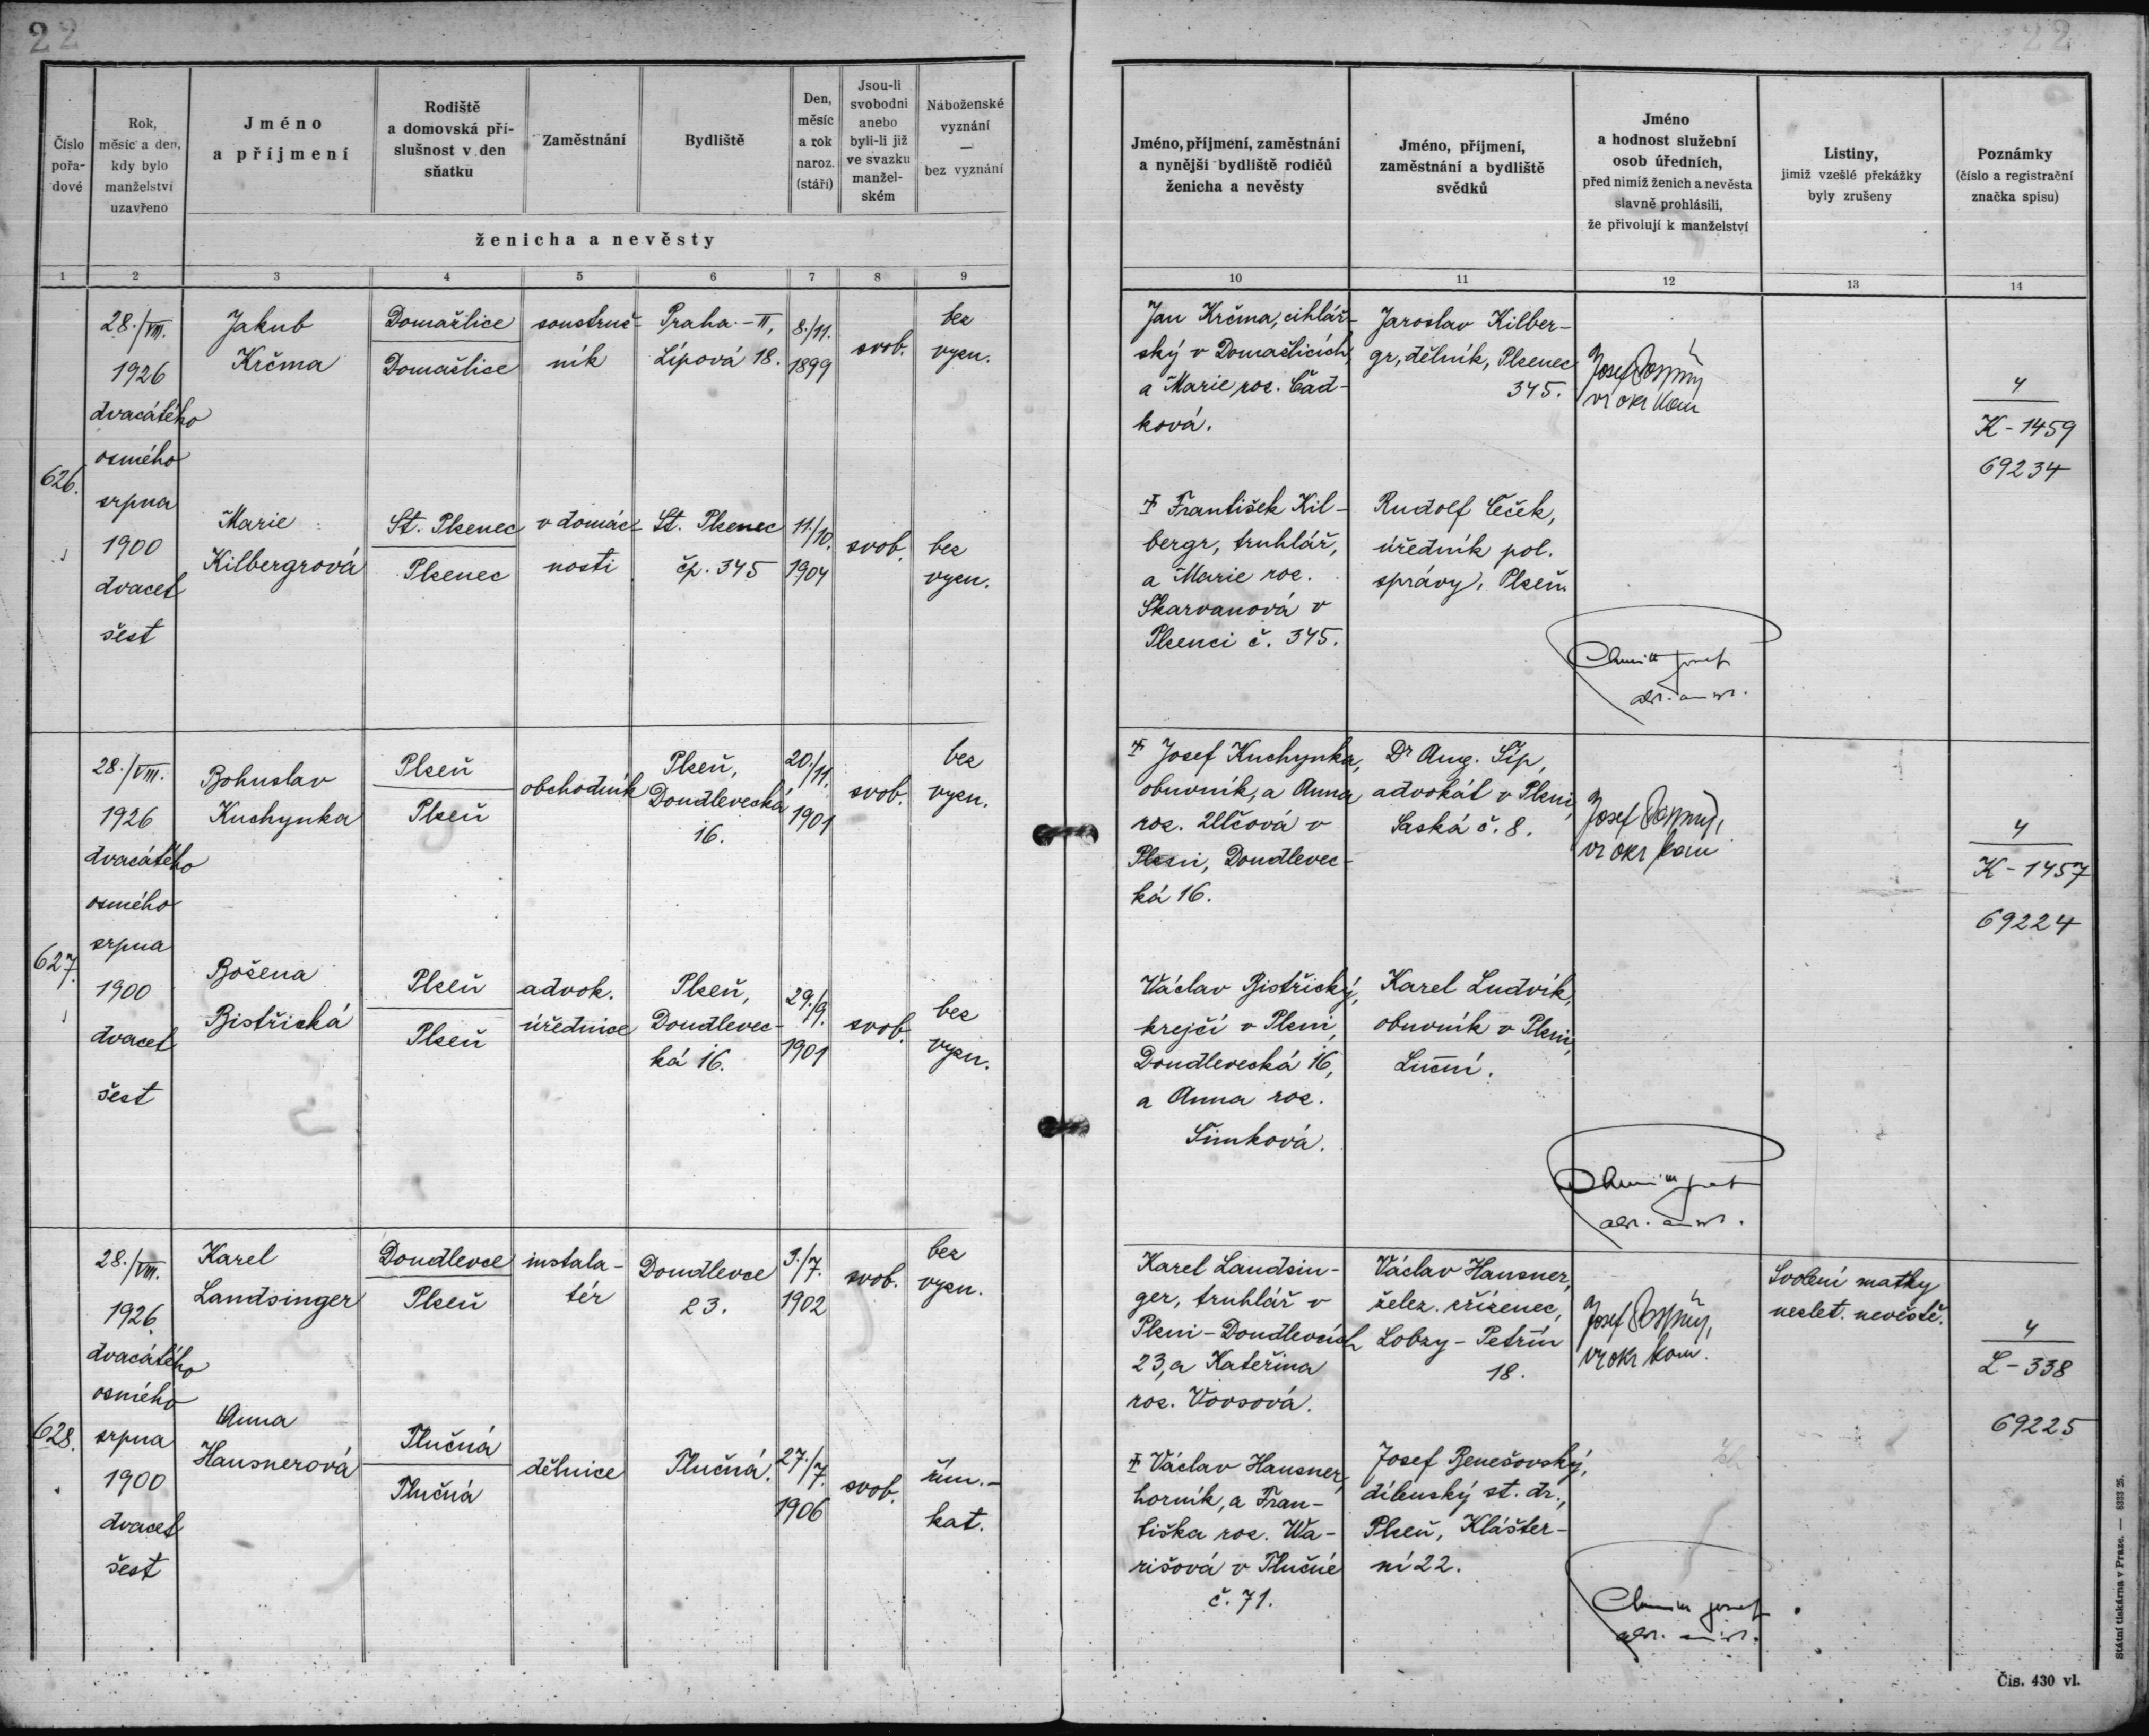 22
22
Číslo pořadové
Rok, měsíc a den, kdy bylo manželství uzavřeno
Jméno a příjmení
Rodiště a domovská příslušnost v den sňatku
Zaměstnání
Bydliště
Den, měsíc a rok naroz. (stáří)
Jsou-li svobodni anebo byli-li již ve svazku manželském
Náboženské vyznání — bez vyznání
ženicha a nevěsty
Jméno, příjmení, zaměstnání a nynější bydliště rodičů ženicha a nevěsty
Jméno, příjmení, zaměstnání a bydliště svědků
Jméno a hodnost služební osob úředních, před nimiž ženich a nevěsta slavně prohlásili, že přivolují k manželství
Listiny, jimiž vzešlé překážky byly zrušeny
Poznámky (číslo a registrační značka spisu)
1 2 3 4 5 6 7 8 9 10 11 12 13 14
626.
28./VIII.
1926
dvacátého
osmého
srpna
1900
dvacet
šest
Jakub
Krčma
Domažlice
Domažlice
soustruž-
ník
Praha-II,
Lípová 18.
8./11.
1899
svob.
bez
vyzn.
Jan Krčma, cihlář-
ský v Domažlicích,
a Marie roz. Čad-
ková.
Jaroslav Kilber-
gr, dělník, Plzenec
345.
Josef
vr okr kom
4
K-1459
69234
Marie
Kilbergrová
St. Plzenec
Plzenec
v domác-
nosti
St. Plzenec
čp. 345
11./10.
1904
svob.
bez
vyzn.
František Kil-
bergr, truhlář,
a Marie roz.
Skarvanová v
Plzenci č. 345.
Rudolf Ceček,
úředník pol.
správy, Plzeň
Josef
627.
28./VIII.
1926
dvacátého
osmého
srpna
1900
dvacet
šest
Bohuslav
Kuchynka
Plzeň
Plzeň
obchodník
Plzeň,
Doudlevecká
16.
20./11.
1901
svob.
bez
vyzn.
Josef Kuchynka,
obuvník, a Anna
roz. Ulčová v
Plzni, Doudlevec-
ká 16.
Dr Aug. Šíp,
advokát v Plzni,
Saská č. 8.
Josef
vr okr kom
4
K-1457
69224
Božena
Bistřická
Plzeň
Plzeň
advok.
úřednice
Plzeň,
Doudlevec-
ká 16.
29./9.
1901
svob.
bez
vyzn.
Václav Bistřický,
krejčí v Plzni,
Doudlevecká 16,
a Anna roz.
Šimková.
Karel Ludvík,
obuvník v Plzni,
Luční.
628.
28./VIII.
1926
dvacátého
osmého
srpna
1900
dvacet
šest
Karel
Landsinger
Doudlevce
Plzeň
instala-
tér
Doudlevce
23.
3./7.
1902
svob.
bez
vyzn.
Karel Landsin-
ger, truhlář v
Plzni-Doudlevcích
23, a Kateřina
roz. Vovsová.
Václav Hausner,
želez. zřízenec,
Lobzy-Petřín
18.
Josef
vr okr kom.
Svolení matky
nezlet. nevěstě.
4
L-338
69225
Anna
Hausnerová
Tlučná
Tlučná
dělnice
Tlučná.
27./7.
1906
svob.
řím.-
kat.
Václav Hausner,
horník, a Fran-
tiška roz. Wa-
rišová v Tlučné
č. 71.
Josef Benešovský,
dílenský st. dr.,
Plzeň, Klášter-
ní 22.
Josef
Státní tiskárna v Praze. — 8333 25.
Čís. 430 vl.